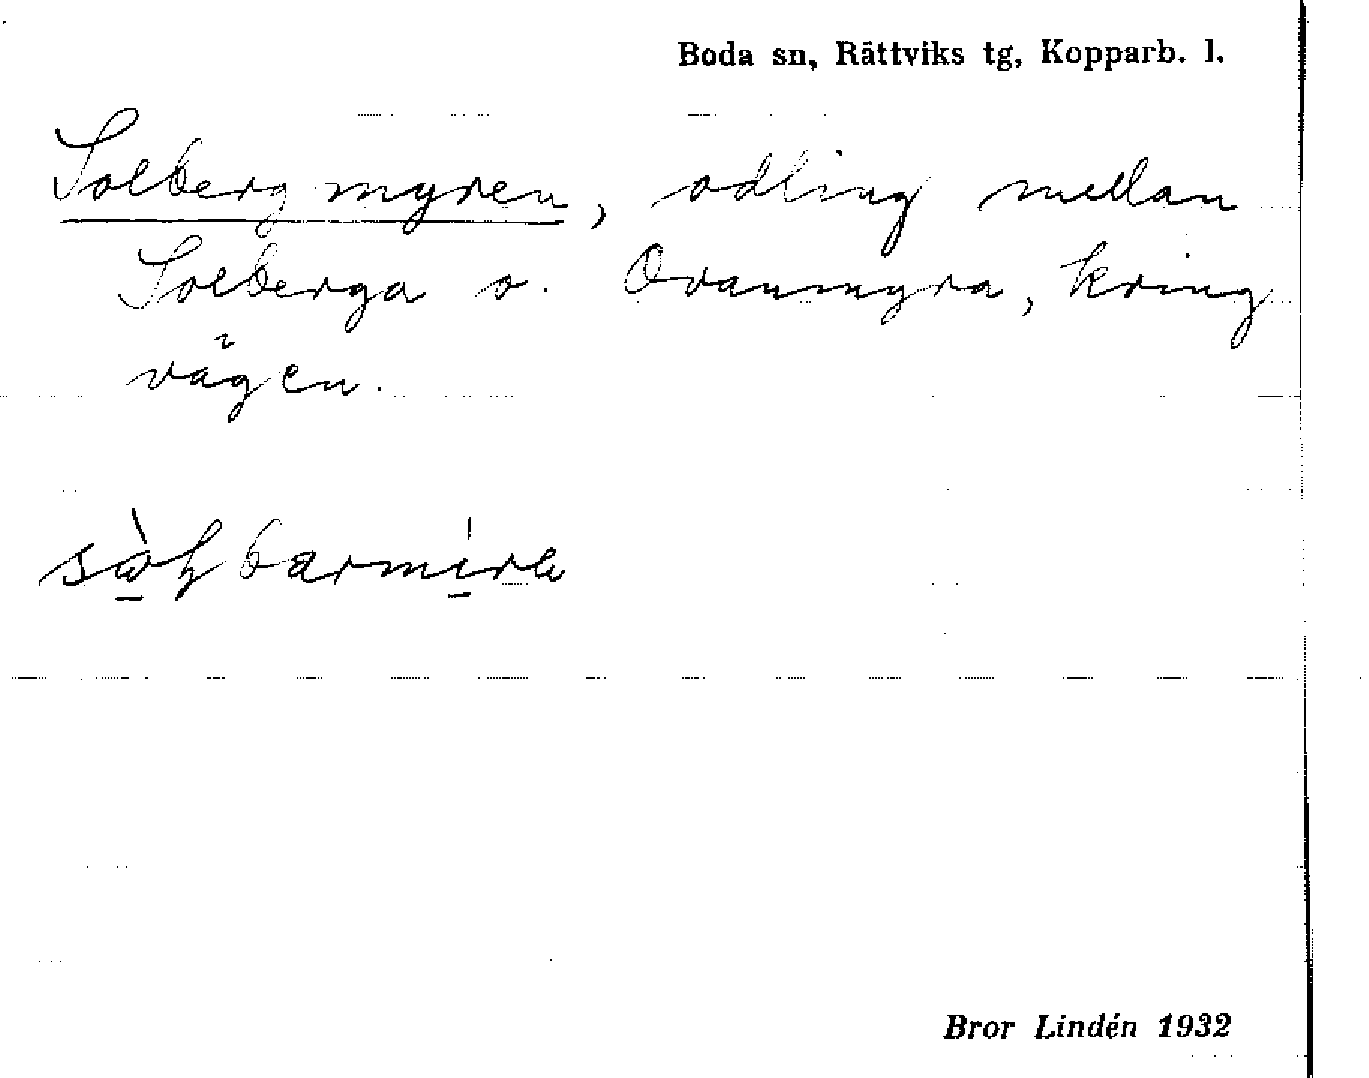 Boda sn, Rättviks tg, Kopparb. l.
Solbergmyren, odling mellan
Solberga o. Ovanmyra, kring
vägen.
Bror Lindén 1932